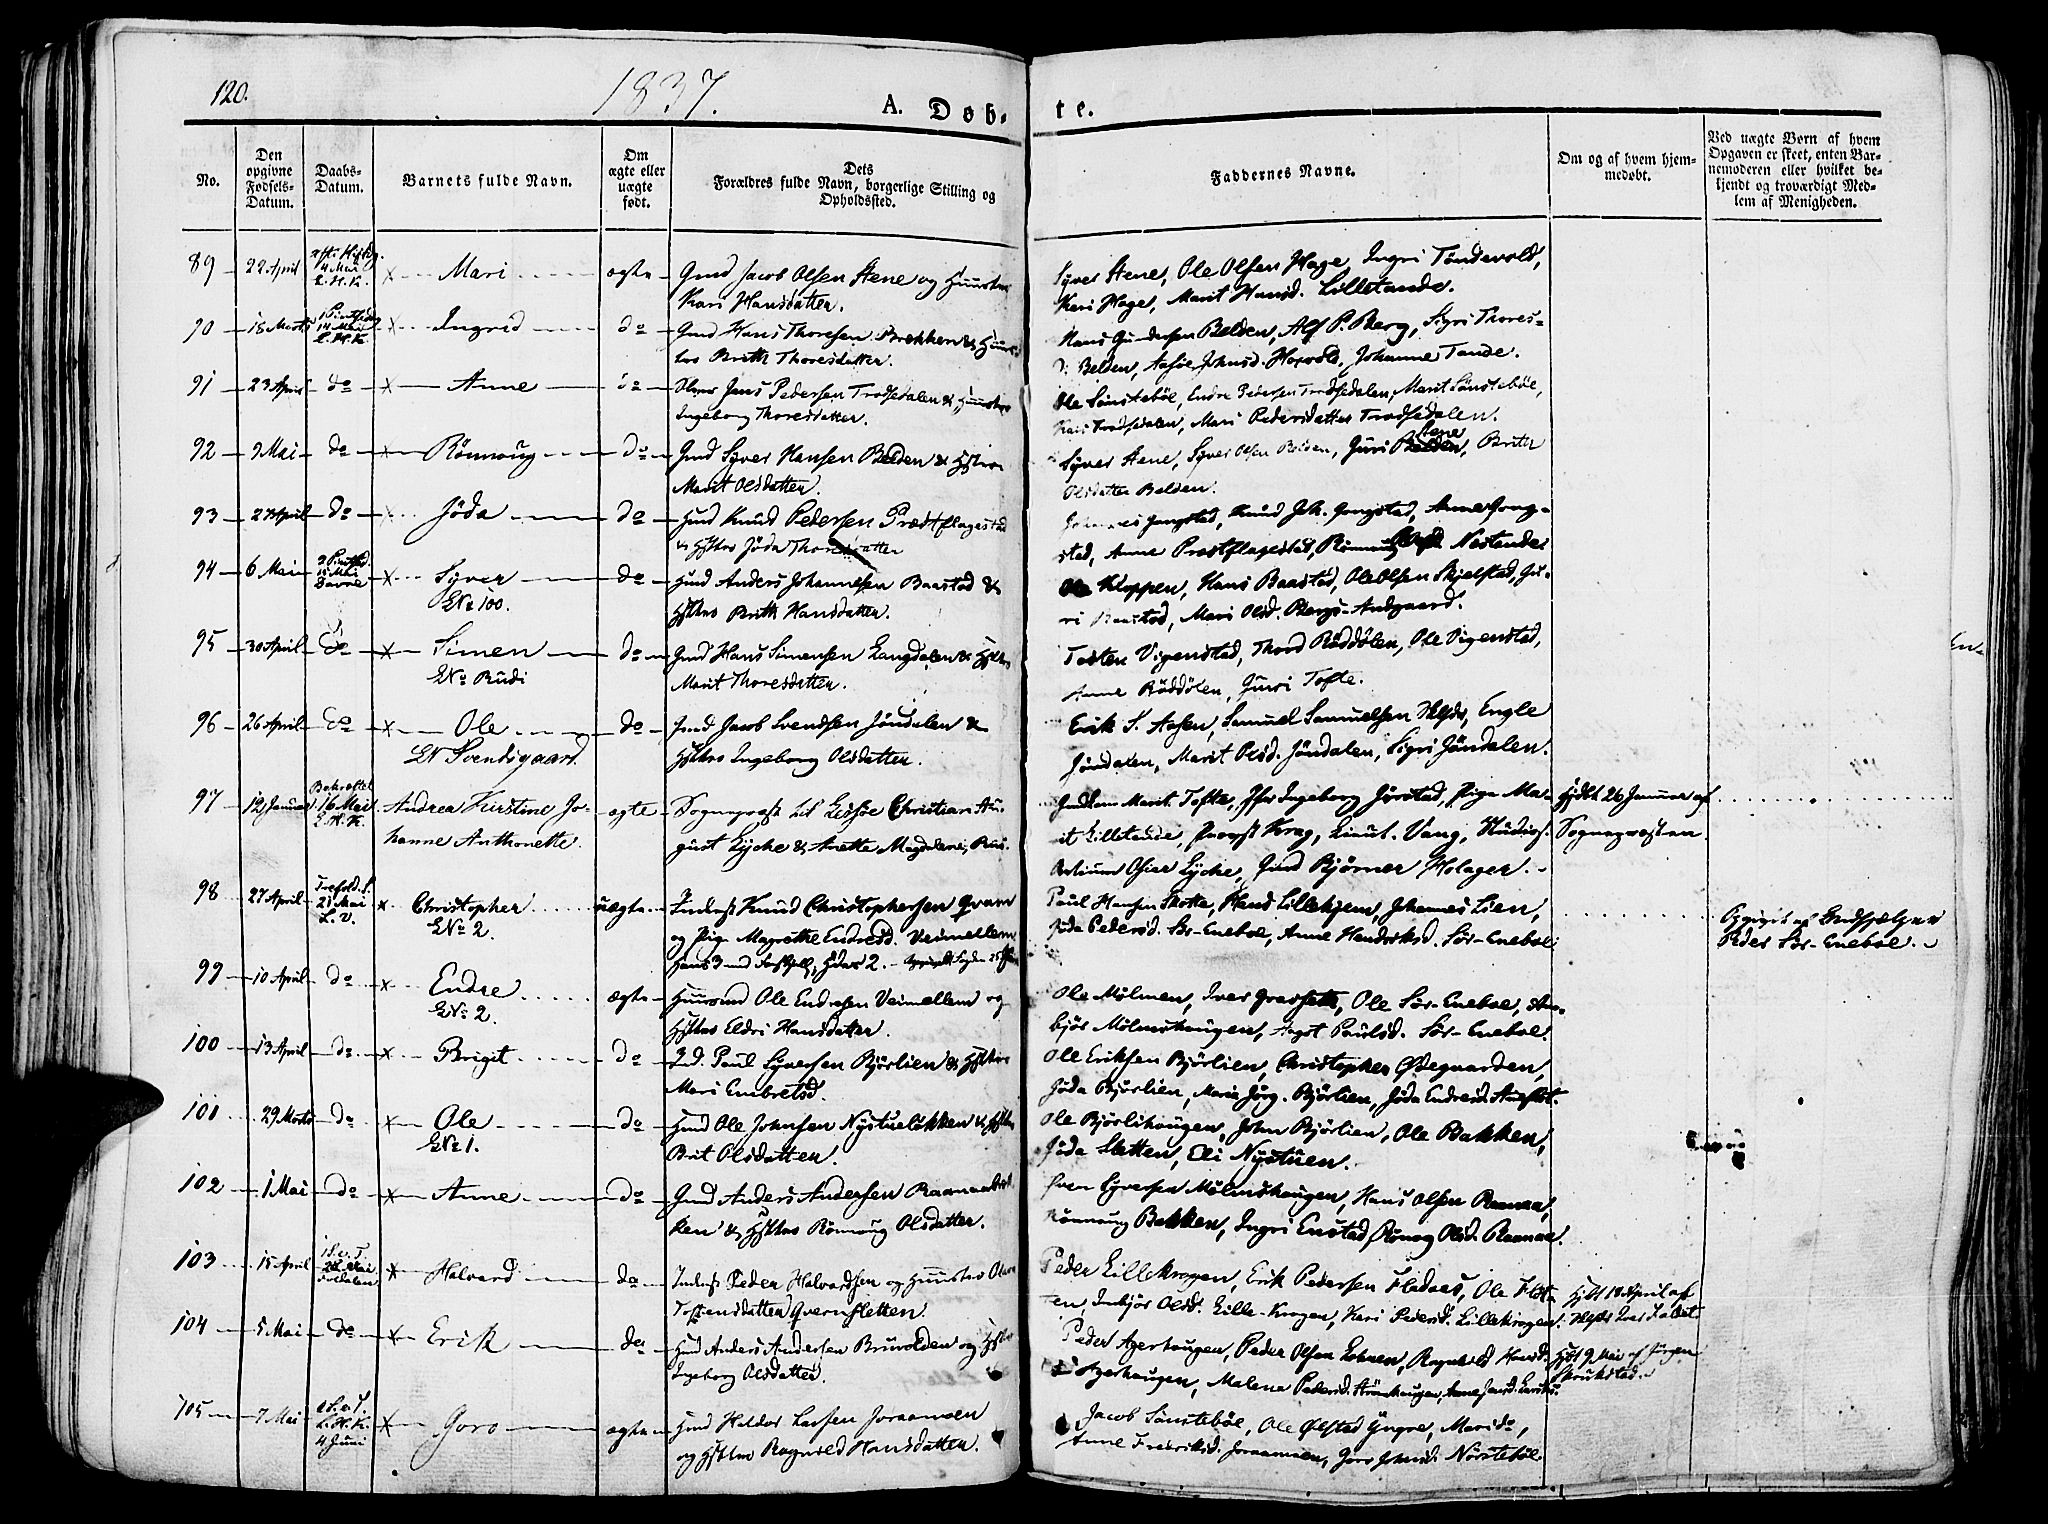 120.
1837.
A. Døb-
te.
No.
Den opgivne Fødsels-Datum.
Daabs-Datum.
Barnets fulde Navn.
Om ægte eller uægte født.
Dets Forældres fulde Navn, borgerlige Stilling og Opholdssted.
Faddernes Navne.
Om og af hvem hjem-
medøbt.
Ved uægte Børn af hvem
Opgaven er skeet, enten Bar-
nemoderen eller hvilket be-
kjendt og troværdigt Med-
lem af Menigheden.
89 22 April 4 Mai L.H.K. x Mari ægte Gmd Jacob Olsen Stene og Hustru
Kari Hansdatter.
Syver Stene, Ole Olsen Hage, Ingri Tøndevold,
Kari Hage, Marit Hansd. Lilletande.
90 18 Marts 14 Mai L.H.K. x Ingrid do Gmd Hans Thoresen Brekken & Hust-
ro Brith Thoresdatter.
Hans Gundersen Belden, Alf P. Berg, Sigri Thores-
d: Belden, Johanne Tande.
91 23 April do x Anne do Jens Pedersen Trodsedalen & Hustroe
Ingeborg Thoresdatter.
Ole Sønstebøe, Endre Pedersen Trodsedalen, Marit Sønstebøe,
Kari Trodsedalen, Mari Pedersdatter Trodsedalen.
92 9 Mai do x Rønnoug do Gmd Syver Hansen Belden & Hstroe
Marit Olsdatter.
Stene
Syver Stene, Syver Olsen Belden, Guri Belden, Brith
Olsdatter Belden.
93 27 April do x Jøda do Hmd Knud Pedersen Prestflagestad
& Hstroe Jøda Thoresdatter
Johannes Jongstad, Knud Joh. Jongstad, Anne Jong-
stad, Anne Prestflagestad, Rønnoug Nestande
94 6 Mai 2 Pintsed. 15 Mai Davne x Syver do Hmd Anders Johannesen Baastad &
No 100. Hstroe Brith Hansdatter.
Ole Kloppen, Hans Baastad, Ole Olsen Skjelstad, Gu-
ri Baastad, Mari Olsd. Bergs-Andgaard.
95 30 April do x Simen do Gmd Hans Simensen Langdalen & Hstroe
No Rudi Marit Thoresdatter.
Tosten Vigenstad, Thord Røddølen, Ole Vigenstad,
Anne Røddølen, Guri Tofte.
96 26 April do x Ole do Jacob Svendsen Jøndalen &
Svendsgaard. Hstroe Ingeborg Olsdatter.
Erik S. Aasen, Samuel Samuelsen, Engle
Jøndalen, Marit Olsd. Jøndalen, Sigri Jøndalen.
97 12 Januar Bekræftet 16 Mai L.H.K. Andrea Kirstine Jo- ægte Sogneprest til Lessøe Christian Au-
hanne Anthonette. gust Lycke & Anette Magdalene
Marit Tofte, Ingeborg Jørstad, Pige Ma-
rit Lilletande, Provst Krag, Lieut. Vang, Studios.
Artium Lycke, Bjørner Holager.
Hjdbt 26 Januar af
Sognepresten.
98 27 April Trefold. S. 21 Mai L.V. x Christopher uægte Inderst Knud Christophersen Qvam
No 2. og Pige Magrethe Endresd. Veimellem
Hans 3 , Hdes 2.
Paul Hansen Skotte, Hans Lillehjem, Johannes Lien,
Jøda Pedersd. Sør-Eneboe, Anne Hendriksd. Sør-Eneboe.
Opgivet af
Peder Sør-Eneboe.
99 10 April do x Endre ægte Huusmd Ole Endresen Veimellem og
No 2. Hstroe Eldri Hansdatter.
Ole Mølmen, Iver, Ole Sør-Eneboe, Am-
bjør Mølmshaugen, Paulsd. Sør-Eneboe.
100 13 April do x Brigit do Paul Syversen Bjørlien & Hstroe
Mari Embretsd.
Ole Eriksen Bjørlien, Christopher Østegaarden,
Jøda Bjørlien, Marie Jørg. Bjørlien, Jøda Endresd.
101 29 Marts do x Ole do Hmd Ole Johnsen Nystueløkken & Hstroe
No 1. Brit Olsdatter.
Ole Bjørlihaugen, John Bjørlien, Ole Bakken,
Jøda Sletten, Eli Nystuen.
102 1 Mai do x Anne do Gmd Anders Andersen Raanaabak-
ken & Hstroe Rønnoug Olsdatter.
Iver Syversen Mølmshaugen, Hans Olsen Raanaa,
Rønnoug Bakken, Ingri Enstad, Rønoug Olsd. Raanaa.
103 15 April 1 S. e. T. Mai x Halvard do Inderst Peder Halvardsen og Huustroe
Tostensdatter Qvernsletten.
Peder Lillekrogen, Erik Pedersen Fladaas, Ole Flat-
en, Imbjør Olsd. Lille-Krogen, Kari Pedersd. Lillekrogen.
Hjdbt 18 April af
104 5 Mai do x Erik do Hmd Anders Andersen Bruvolden og Hstroe
Ingeborg Olsdatter.
Peder Agerhaugen, Peder Olsen, Ragnild Hansd.
Agerhaugen, Malene Pedersd.
Hjdbt 9 Mai af Jørgen
Skrukstad.
105 7 Mai 2 S. e. T. L.H.K. 4 Juni x Goro ægte Hmd Haldor Larsen Joraamoen
og Hstroe Ragnild Hansdatter.
Jacob Sønstebøe, Ole Ølstad Yngre, Mari do,
Anne Fredriksd. Joraamoen, Goro Johnsd. Nørstebøe.